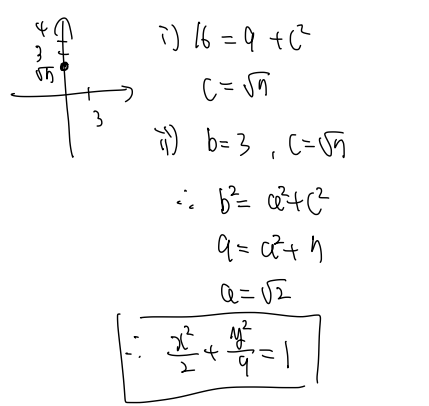 4
3
√7
3
i) 16 = 9 + c²
c = √7
ii) b = 3 , c = √7
∴ b² = a² + c²
9 = a² + 7
a = √2
∴ x²/2 + y²/9 = 1